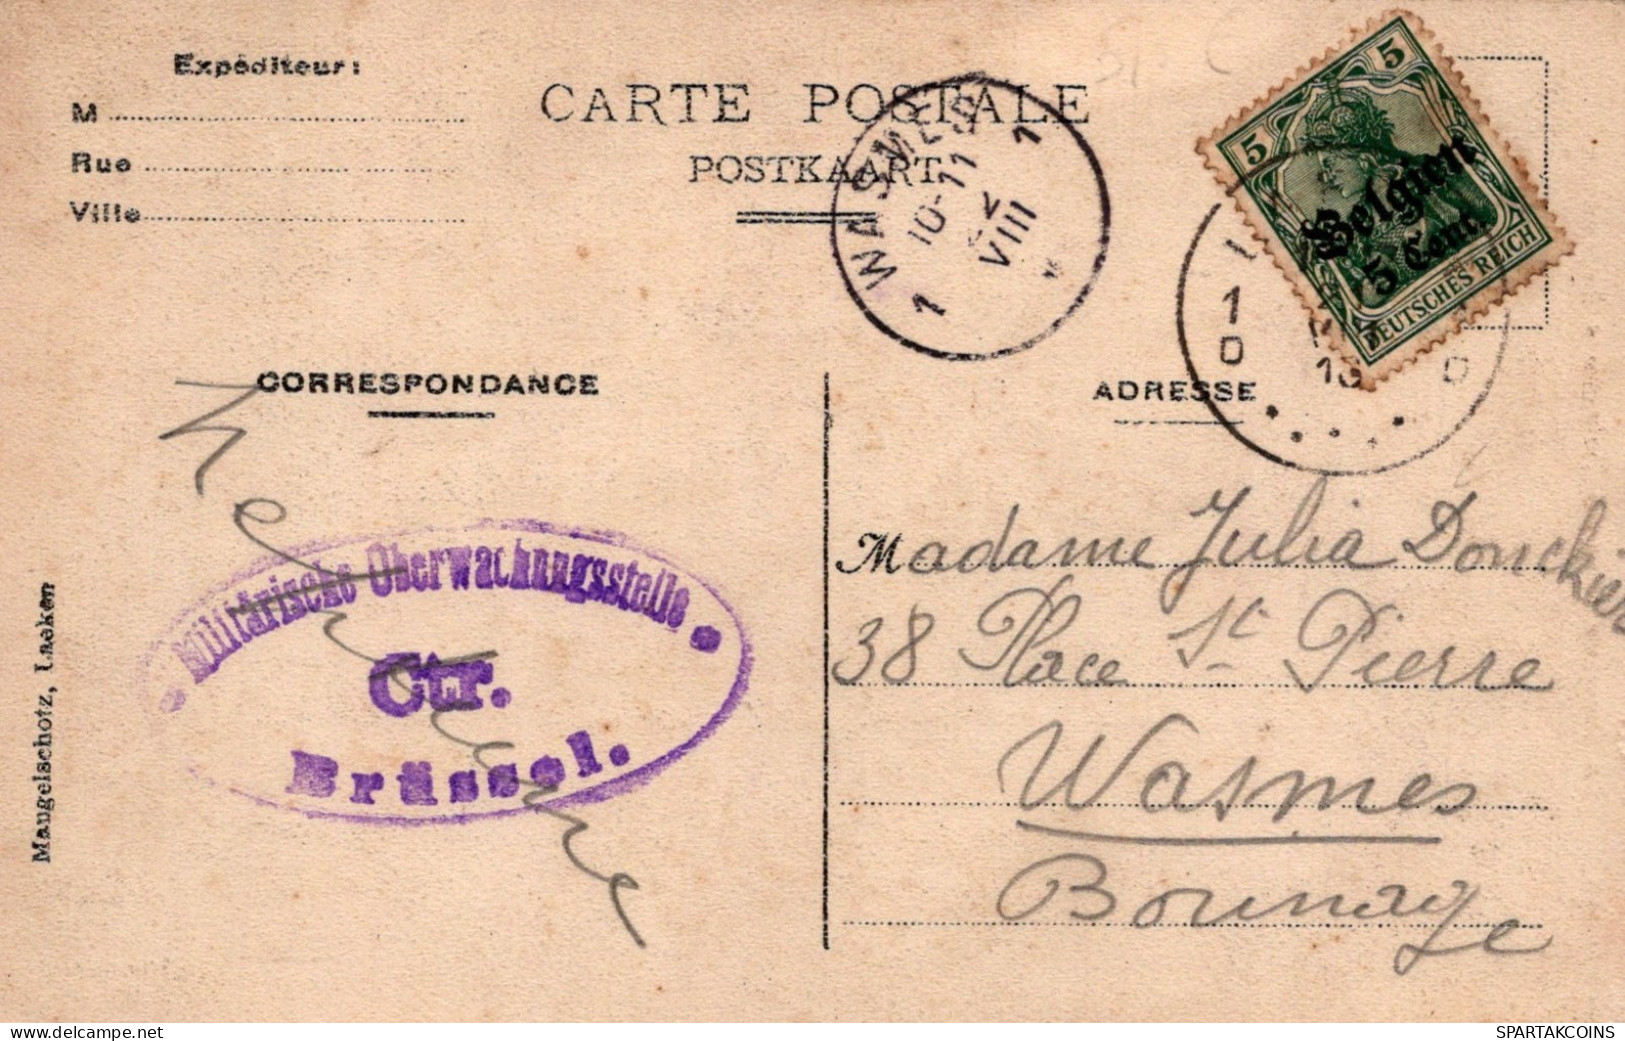 Expéditeur:
M
Rue
Ville
CARTE POSTALE
POSTKAART
WASMES
1
10-11
VIII
1
5
5
Belgien
5 Cent.
DEUTSCHES REICH
1
D
D
CORRESPONDANCE
ADRESSE
Militärische Oberwachungsstelle
Ctr.
Brüssel.
Madame Julia Donckier
38 Place St Pierre
Wasmes
Borinage
Maugelschotz, Laeken
delcampe.net
SPARTAKCOINS